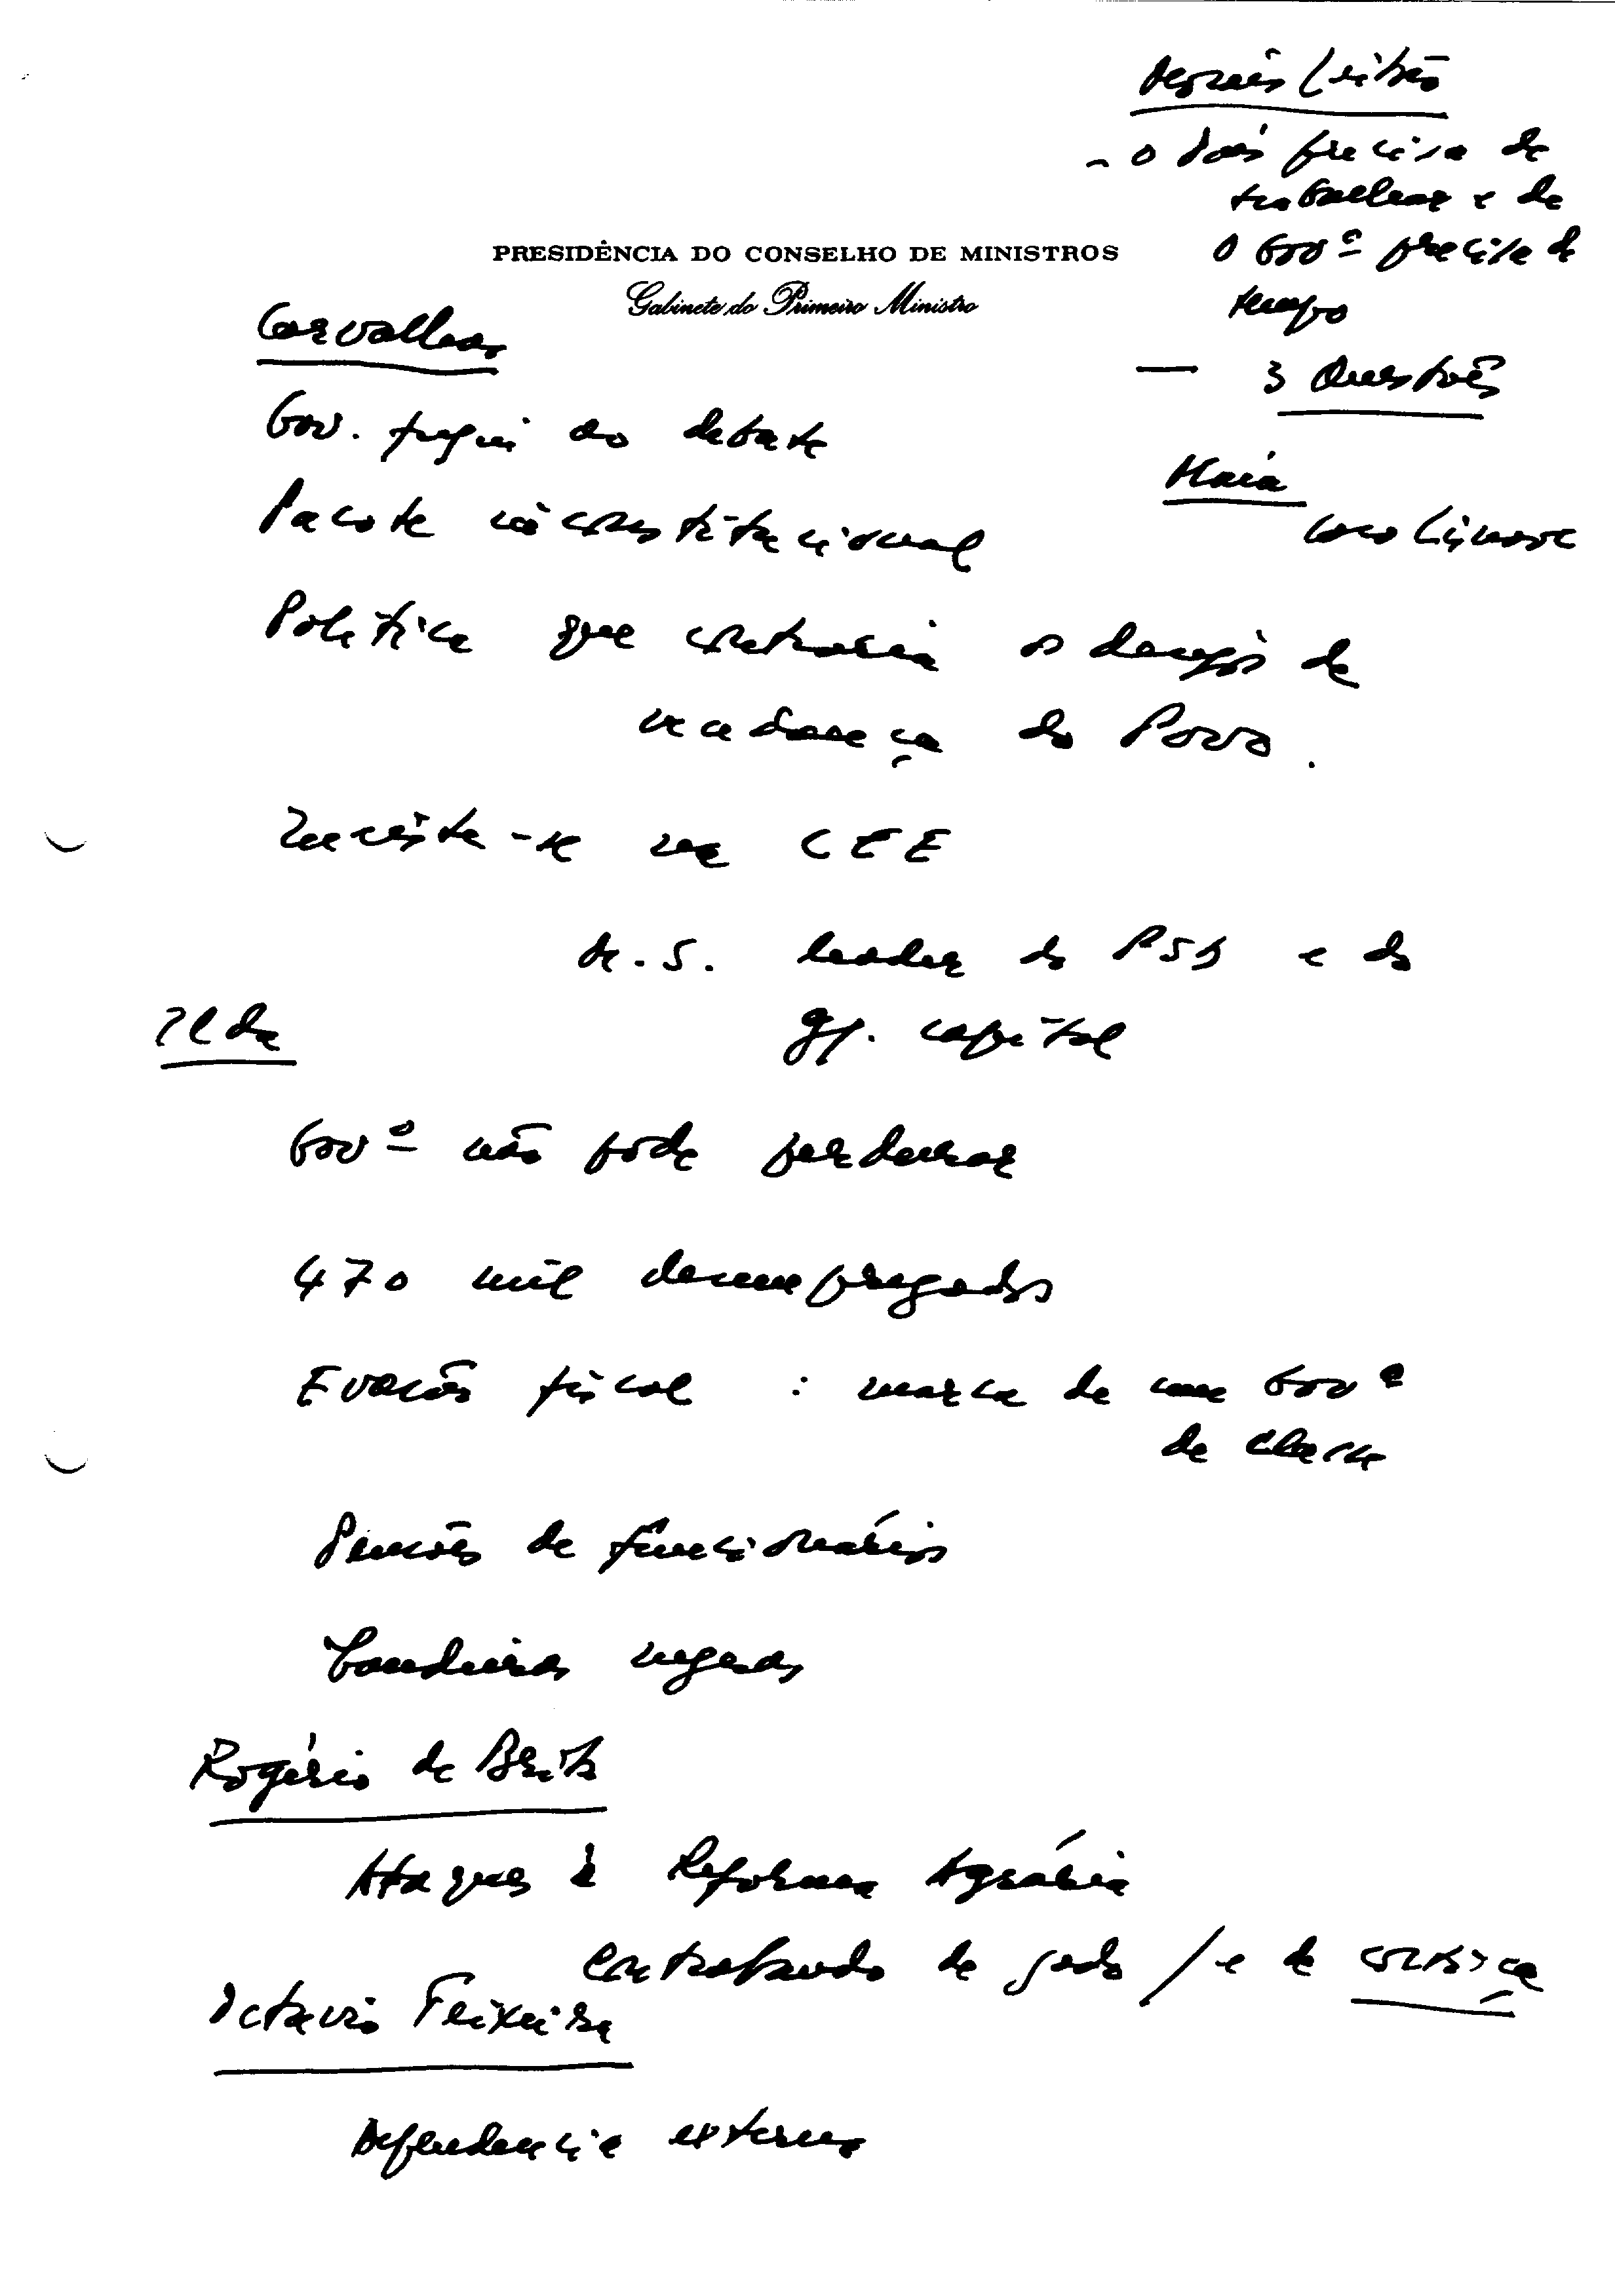 Morais Leitão
- O País precisa de
trabalhar e de
O Govº precisa de
tempo
— 3 Questões
PRESIDÊNCIA DO CONSELHO DE MINISTROS
Gabinete do Primeiro Ministro
Carvalhas
Gov. fugiu ao debate
Maia
Pacote inconstitucional
Política que contraria os desejos de
mudança do Povo.
Insiste-se na CEE
M. S. leader do PSD e do
gr. capital
Ilda
Govº não pode perdurar
470 mil desempregados
Evasão fiscal : marca de um Govº
de classe
Pensões de funcionários
bandeiras negras
Rogério de Brito
Ataques à Reforma Agrária
Contrabando de gado / e de cortiça
Octavio Teixeira
Dependencia externa